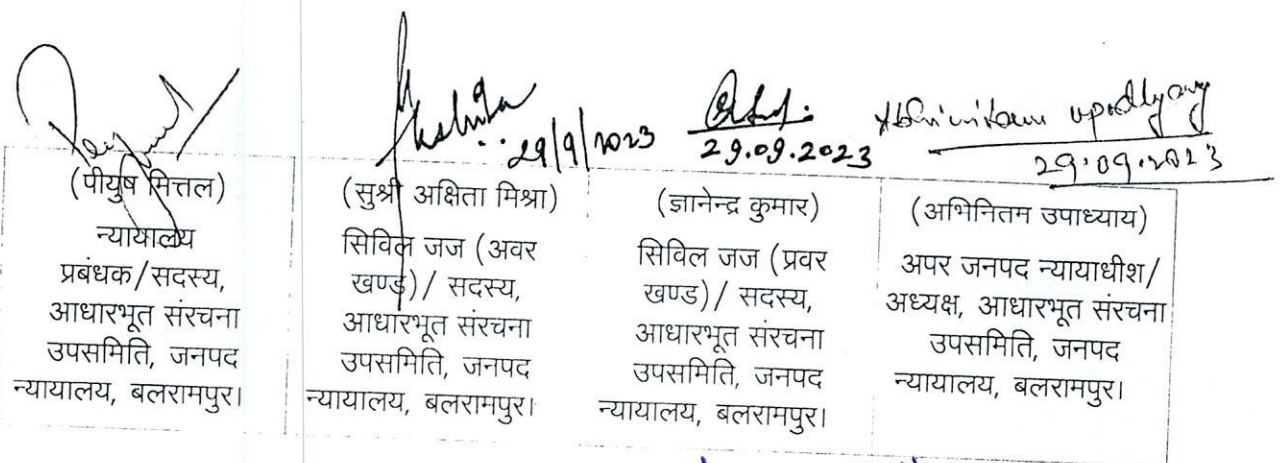 Akshita
29/9/2023
29.09.2023
Abhinitam upadhyay
29.09.2023
(पीयुष मित्तल)
न्यायालय
प्रबंधक/सदस्य,
आधारभूत संरचना
उपसमिति, जनपद
न्यायालय, बलरामपुर।
(सुश्री अक्षिता मिश्रा)
सिविल जज (अवर
खण्ड)/ सदस्य,
आधारभूत संरचना
उपसमिति, जनपद
न्यायालय, बलरामपुर।
(ज्ञानेन्द्र कुमार)
सिविल जज (प्रवर
खण्ड)/ सदस्य,
आधारभूत संरचना
उपसमिति, जनपद
न्यायालय, बलरामपुर।
(अभिनितम उपाध्याय)
अपर जनपद न्यायाधीश/
अध्यक्ष, आधारभूत संरचना
उपसमिति, जनपद
न्यायालय, बलरामपुर।